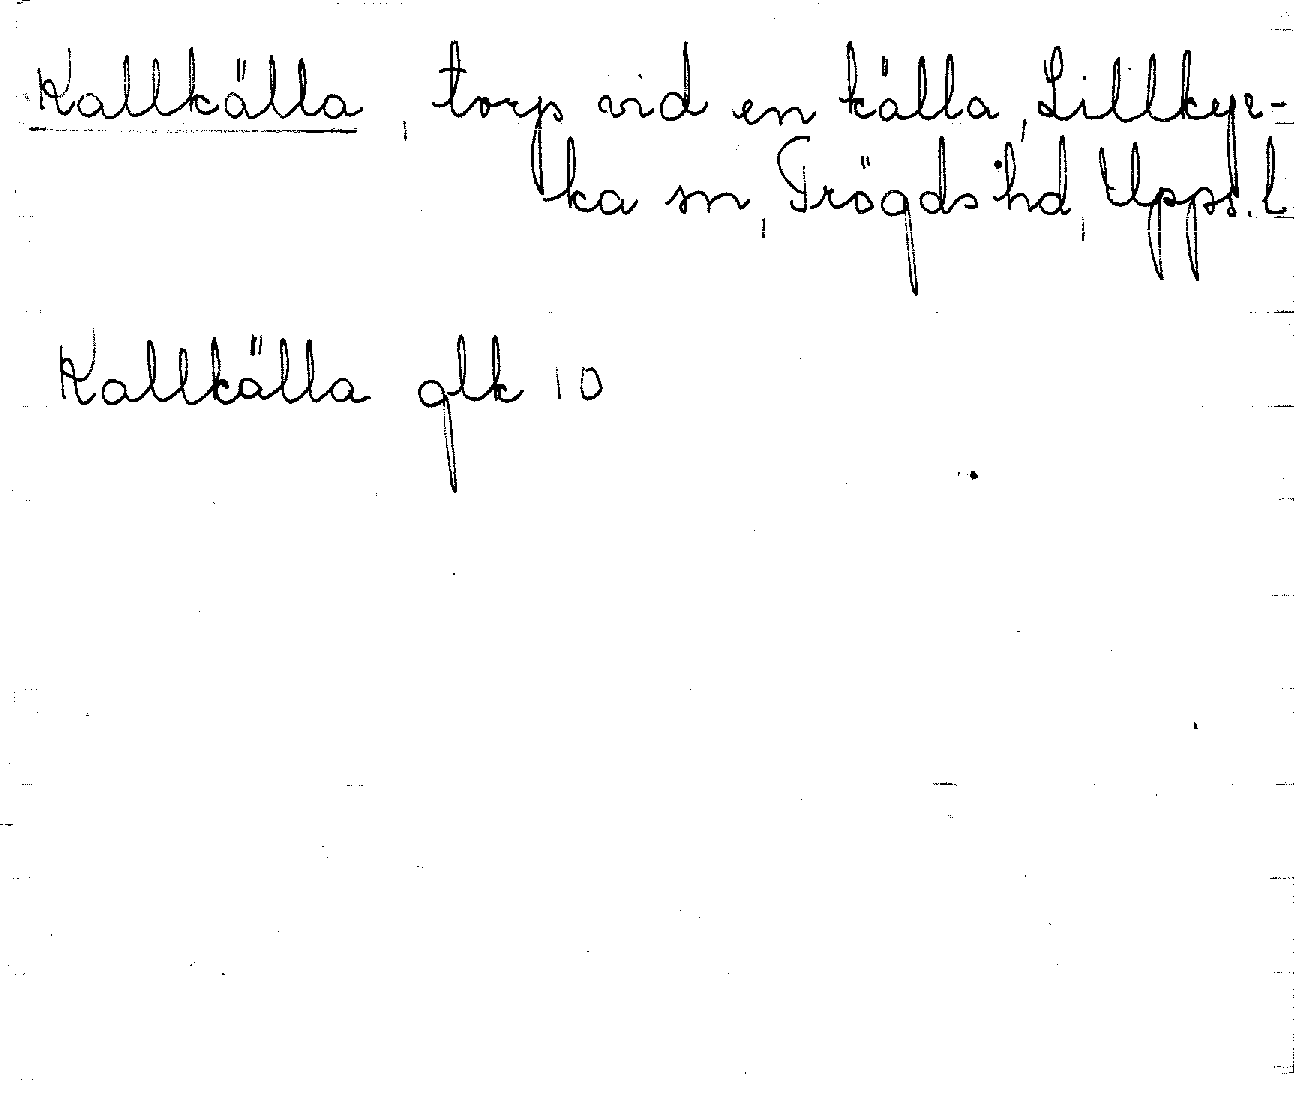 Kallkälla, torp vid en källa, Lillkyr-
ka sn, Trögds hd, Upps. l
Kallkälla glk 10